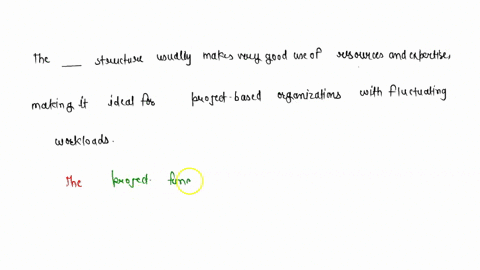 The ___ structure usually makes very good use of resources and expertise,
making it ideal for project-based organizations with fluctuating
workloads.
The project. func